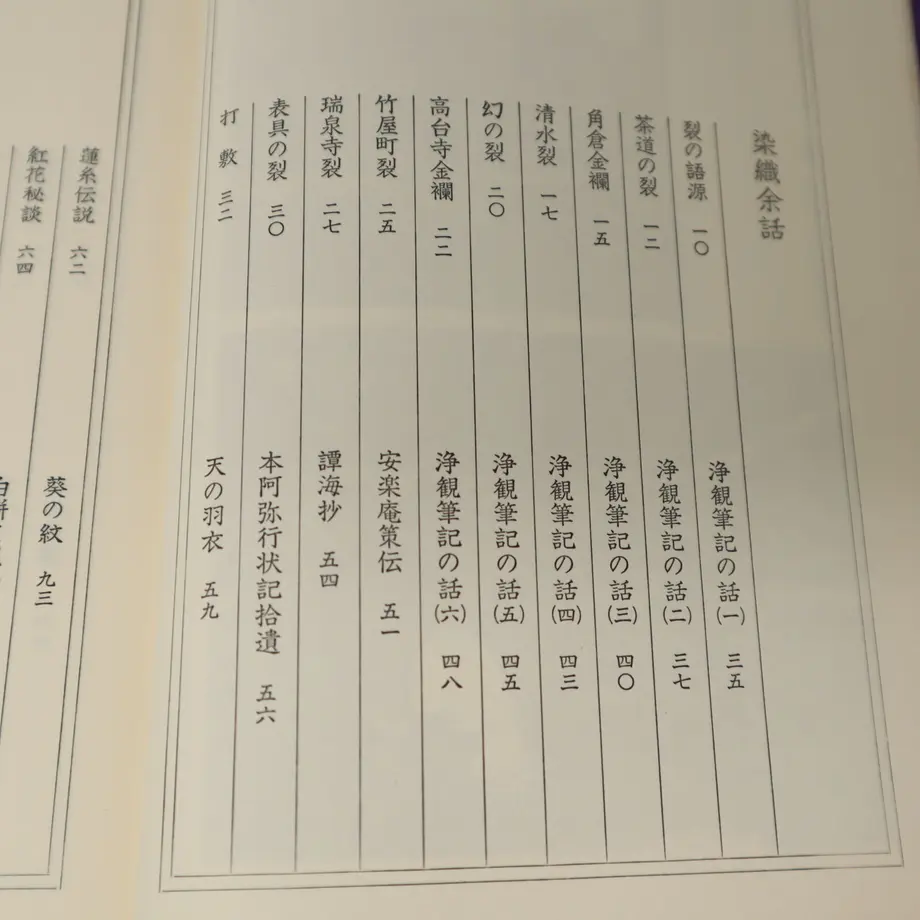 染織余話
裂の語源 一〇
茶道の裂 一二
角倉金襴 一五
清水裂 一七
幻の裂 二〇
高台寺金襴 二二
竹屋町裂 二五
瑞泉寺裂 二七
表具の裂 三〇
打敷 三二
浄観筆記の話(一) 三五
浄観筆記の話(二) 三七
浄観筆記の話(三) 四〇
浄観筆記の話(四) 四三
浄観筆記の話(五) 四五
浄観筆記の話(六) 四八
安楽庵策伝 五一
譚海抄 五四
本阿弥行状記拾遺 五六
天の羽衣 五九
蓮糸伝説 六二
紅花秘談 六四
葵の紋 九三